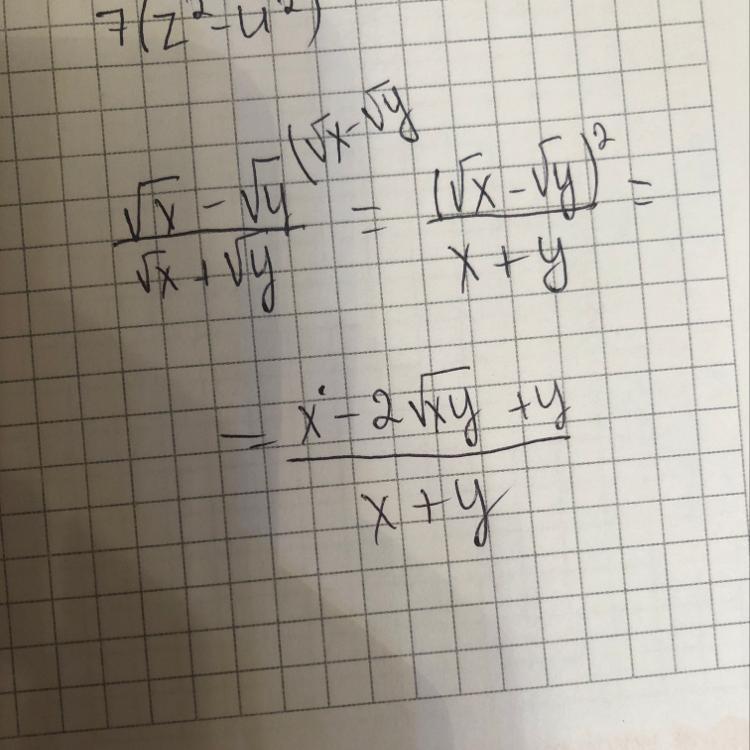 7(z² - u²)
(√x - √y
(√x - √y)/(√x + √y) = (√x - √y)²/(x + y) =
= (x - 2√xy + y)/(x + y)